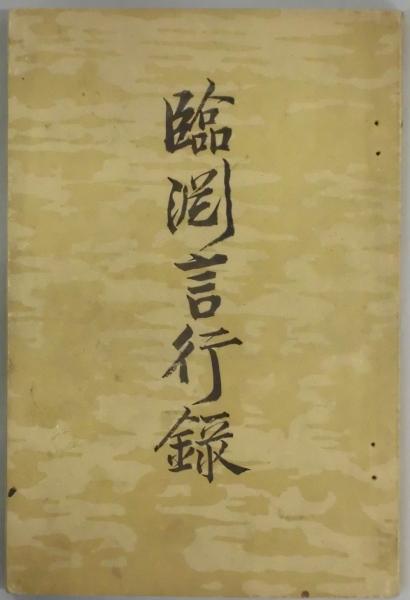 臨淵言行録